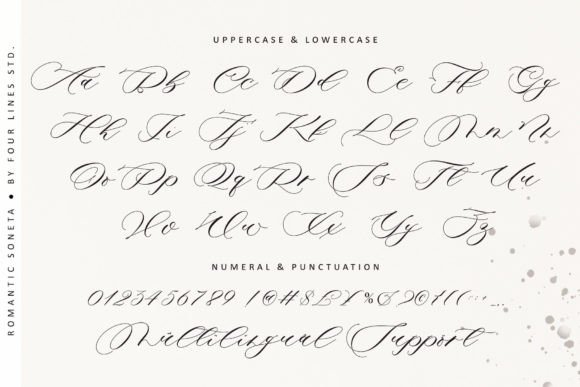 UPPERCASE & LOWERCASE
Aa Bb Cc Dd Ee Ff Gg
Hh Ii Jj Kk Ll Mm Nn
Oo Pp Qq Rr Ss Tt Uu
Vv Ww Xx Yy Zz
NUMERAL & PUNCTUATION
0123456789 !@#$
Multilingual Support
ROMANTIC SONETA ● BY FOUR LINES STD.